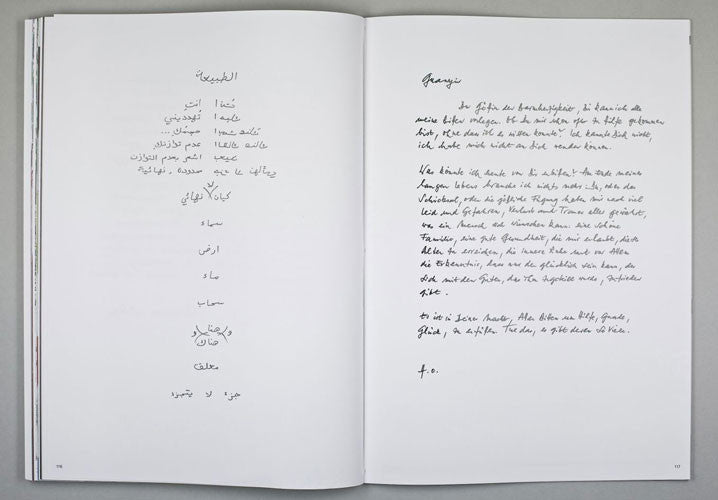 الطبيعة
أنتِ
تُهددينني
حجمك ...
عدم توازنك
اشعر بعدم التوازن
محدودة، نهائية
لا
كيان نهائي
سماء
ارض
ماء
سحاب
و هنا و
هناك
معلق
جزء لا يتجزء
116
Guanyin
Du Göttin der Barmherzigkeit, Dir kann ich alle
meine Bitten vorlegen. Ob Du mir schon öfter zu Hilfe gekommen
bist, ohne dass ich es wissen konnte? Ich kannte Dich nicht,
ich habe mich nicht an Dich wenden können.
Was könnte ich heute von Dir erbitten? Am Ende meines
langen Lebens brauche ich nichts mehr. Du, oder das
Schicksal, oder die göttliche Fügung haben mir nach viel
Leid und Gefahren, Verlust und Trauer alles gewährt,
was ein Mensch sich wünschen kann: eine schöne
Familie, eine gute Gesundheit, die mir erlaubt, dieses
Alter zu erreichen, die innere Ruhe und vor Allem
die Erkenntnis, dass nur der glücklich sein kann, der
sich mit dem Guten, das ihm zugeteilt wurde, zufrieden
gibt.
Es ist in Deiner Macht, Allen Bitten um Hilfe, Gnade,
Glück, zu erfüllen. Tue das, es gibt deren so viele.
A.O.
117